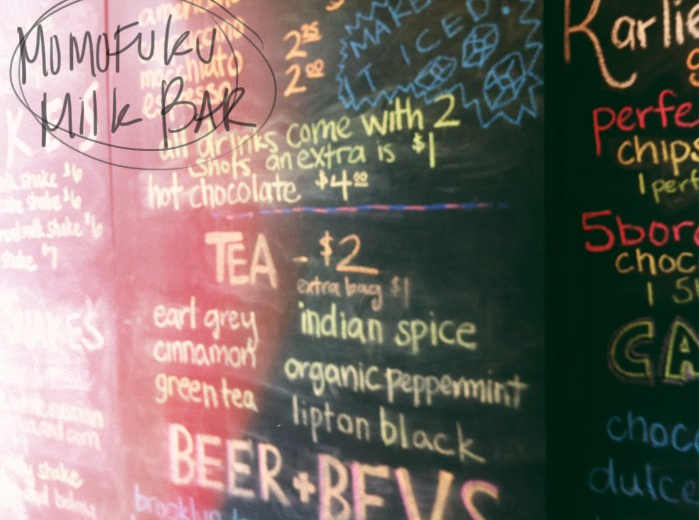 MOMOFUKU
MILK BAR
macchiato
espresso
2 25
2 00
MAKE
IT ICED!
all drinks come with 2
shots, an extra is $1
hot chocolate $4 00
TEA - $2
extra bag $1
earl grey
indian spice
cinnamon
organic peppermint
green tea
lipton black
BEER + BEVS
brooklyn
shake $6
shake $6
milk shake $6
shake $7
shake
Karlie
perfe
chips
1 perf
5boro
choc
1 5
CA
choc
dulce